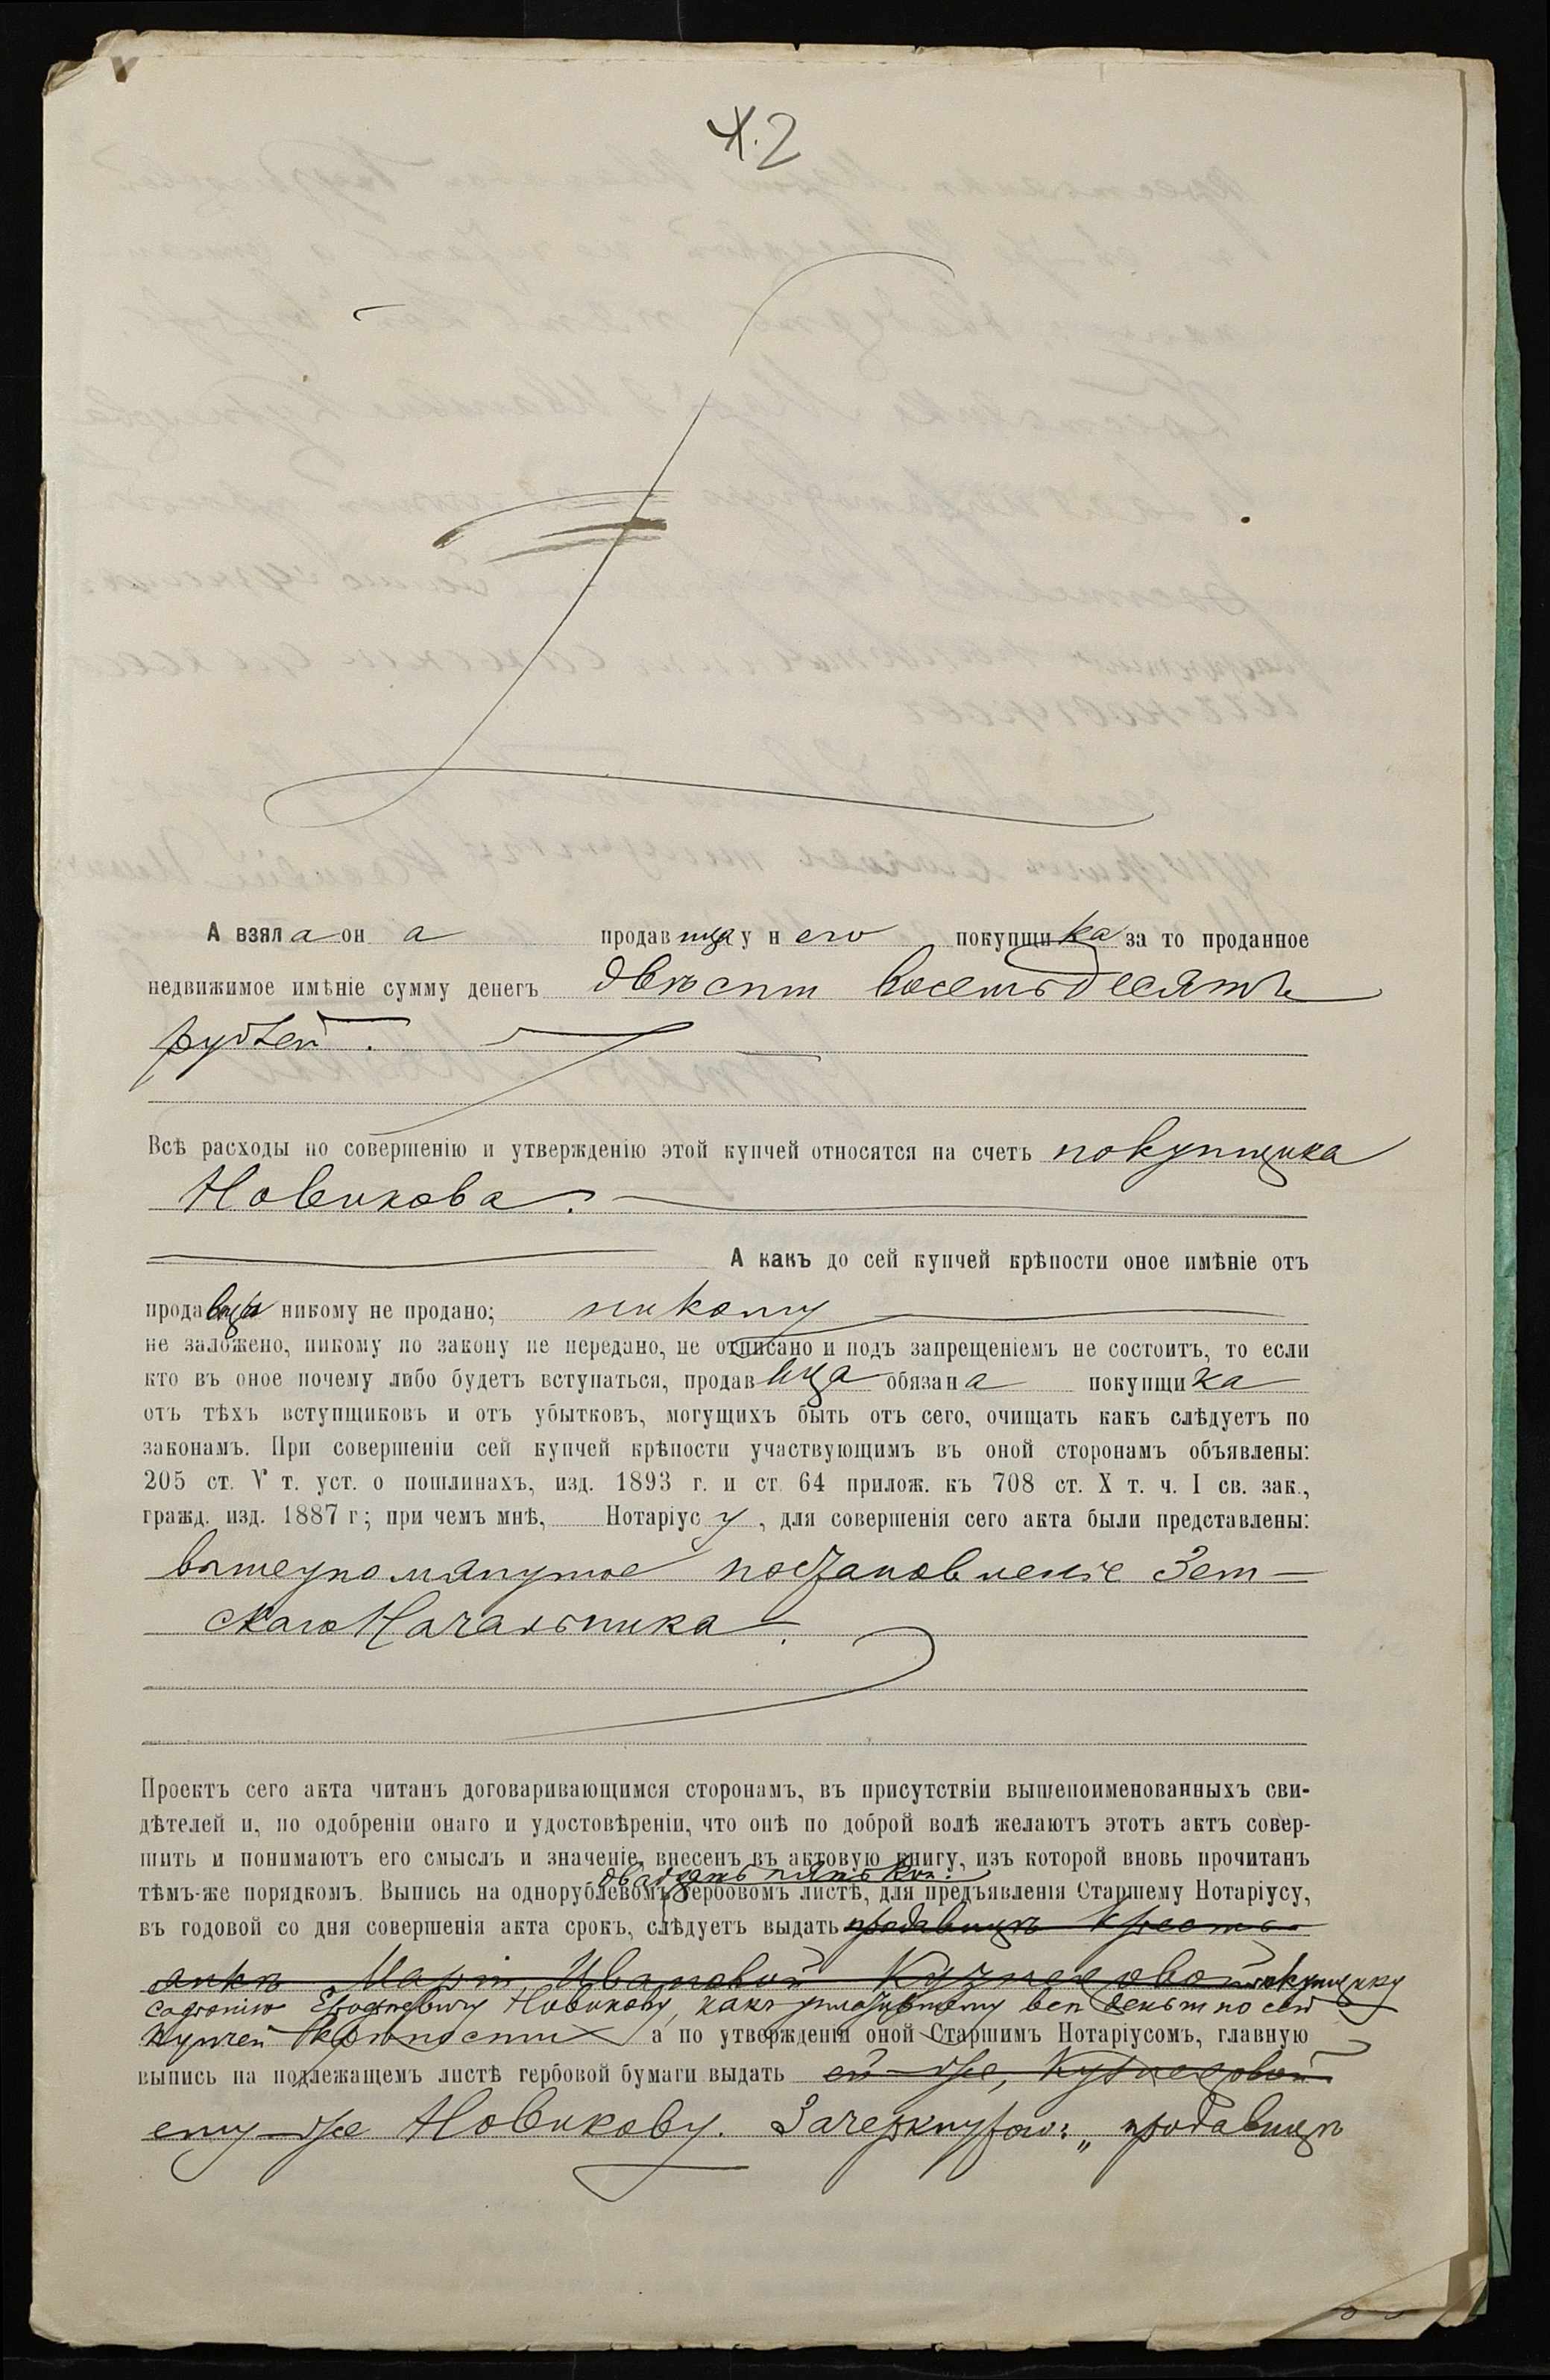 Ч.2
А взяла она продавица у него покупщика за то проданное
недвижимое имѣніе сумму денегъ двѣсти восемьдесятъ
рублей.
Всѣ расходы по совершенію и утвержденію этой купчей относятся на счетъ покупщика
Новикова.
А какъ до сей купчей крѣпости оное имѣніе отъ
продавицы никому не продано; никому
не заложено, никому по закону не передано, не отписано и подъ запрещеніемъ не состоитъ, то если
кто въ оное почему либо будетъ вступаться, продавица обязана покупщика
отъ тѣхъ вступщиковъ и отъ убытковъ, могущихъ быть отъ сего, очищать какъ слѣдуетъ по
законамъ. При совершеніи сей купчей крѣпости участвующимъ въ оной сторонамъ объявлены:
205 ст. V т. уст. о пошлинахъ, изд. 1893 г. и ст. 64 прилож. къ 708 ст. X т. ч. I св. зак.,
гражд. изд. 1887 г; при чемъ мнѣ, Нотаріусу, для совершенія сего акта были представлены:
вышеупомянутое постановленіе Зем-
скаго Начальника.
Проектъ сего акта читанъ договаривающимся сторонамъ, въ присутствіи вышепоименованныхъ сви-
дѣтелей и, по одобреніи онаго и удостовѣреніи, что онѣ по доброй волѣ желаютъ этотъ актъ совер-
шить и понимаютъ его смыслъ и значеніе, внесенъ въ актовую книгу, изъ которой вновь прочитанъ
двадцать пять коп.
тѣмъ-же порядкомъ. Выпись на однорублевомъ гербовомъ листѣ, для предъявленія Старшему Нотаріусу,
въ годовой со дня совершенія акта срокъ, слѣдуетъ выдать продавицѣ кресть-
янкѣ Маріи Ивановой Кузнецовой покупщику
Новикову, какъ уплатившему всѣ деньги по сей
купчей крѣпости а по утвержденіи оной Старшимъ Нотаріусомъ, главную
выпись на подлежащемъ листѣ гербовой бумаги выдать ей-же, Кузнецовой
ему-же Новикову. Зачеркнутое: „продавицѣ